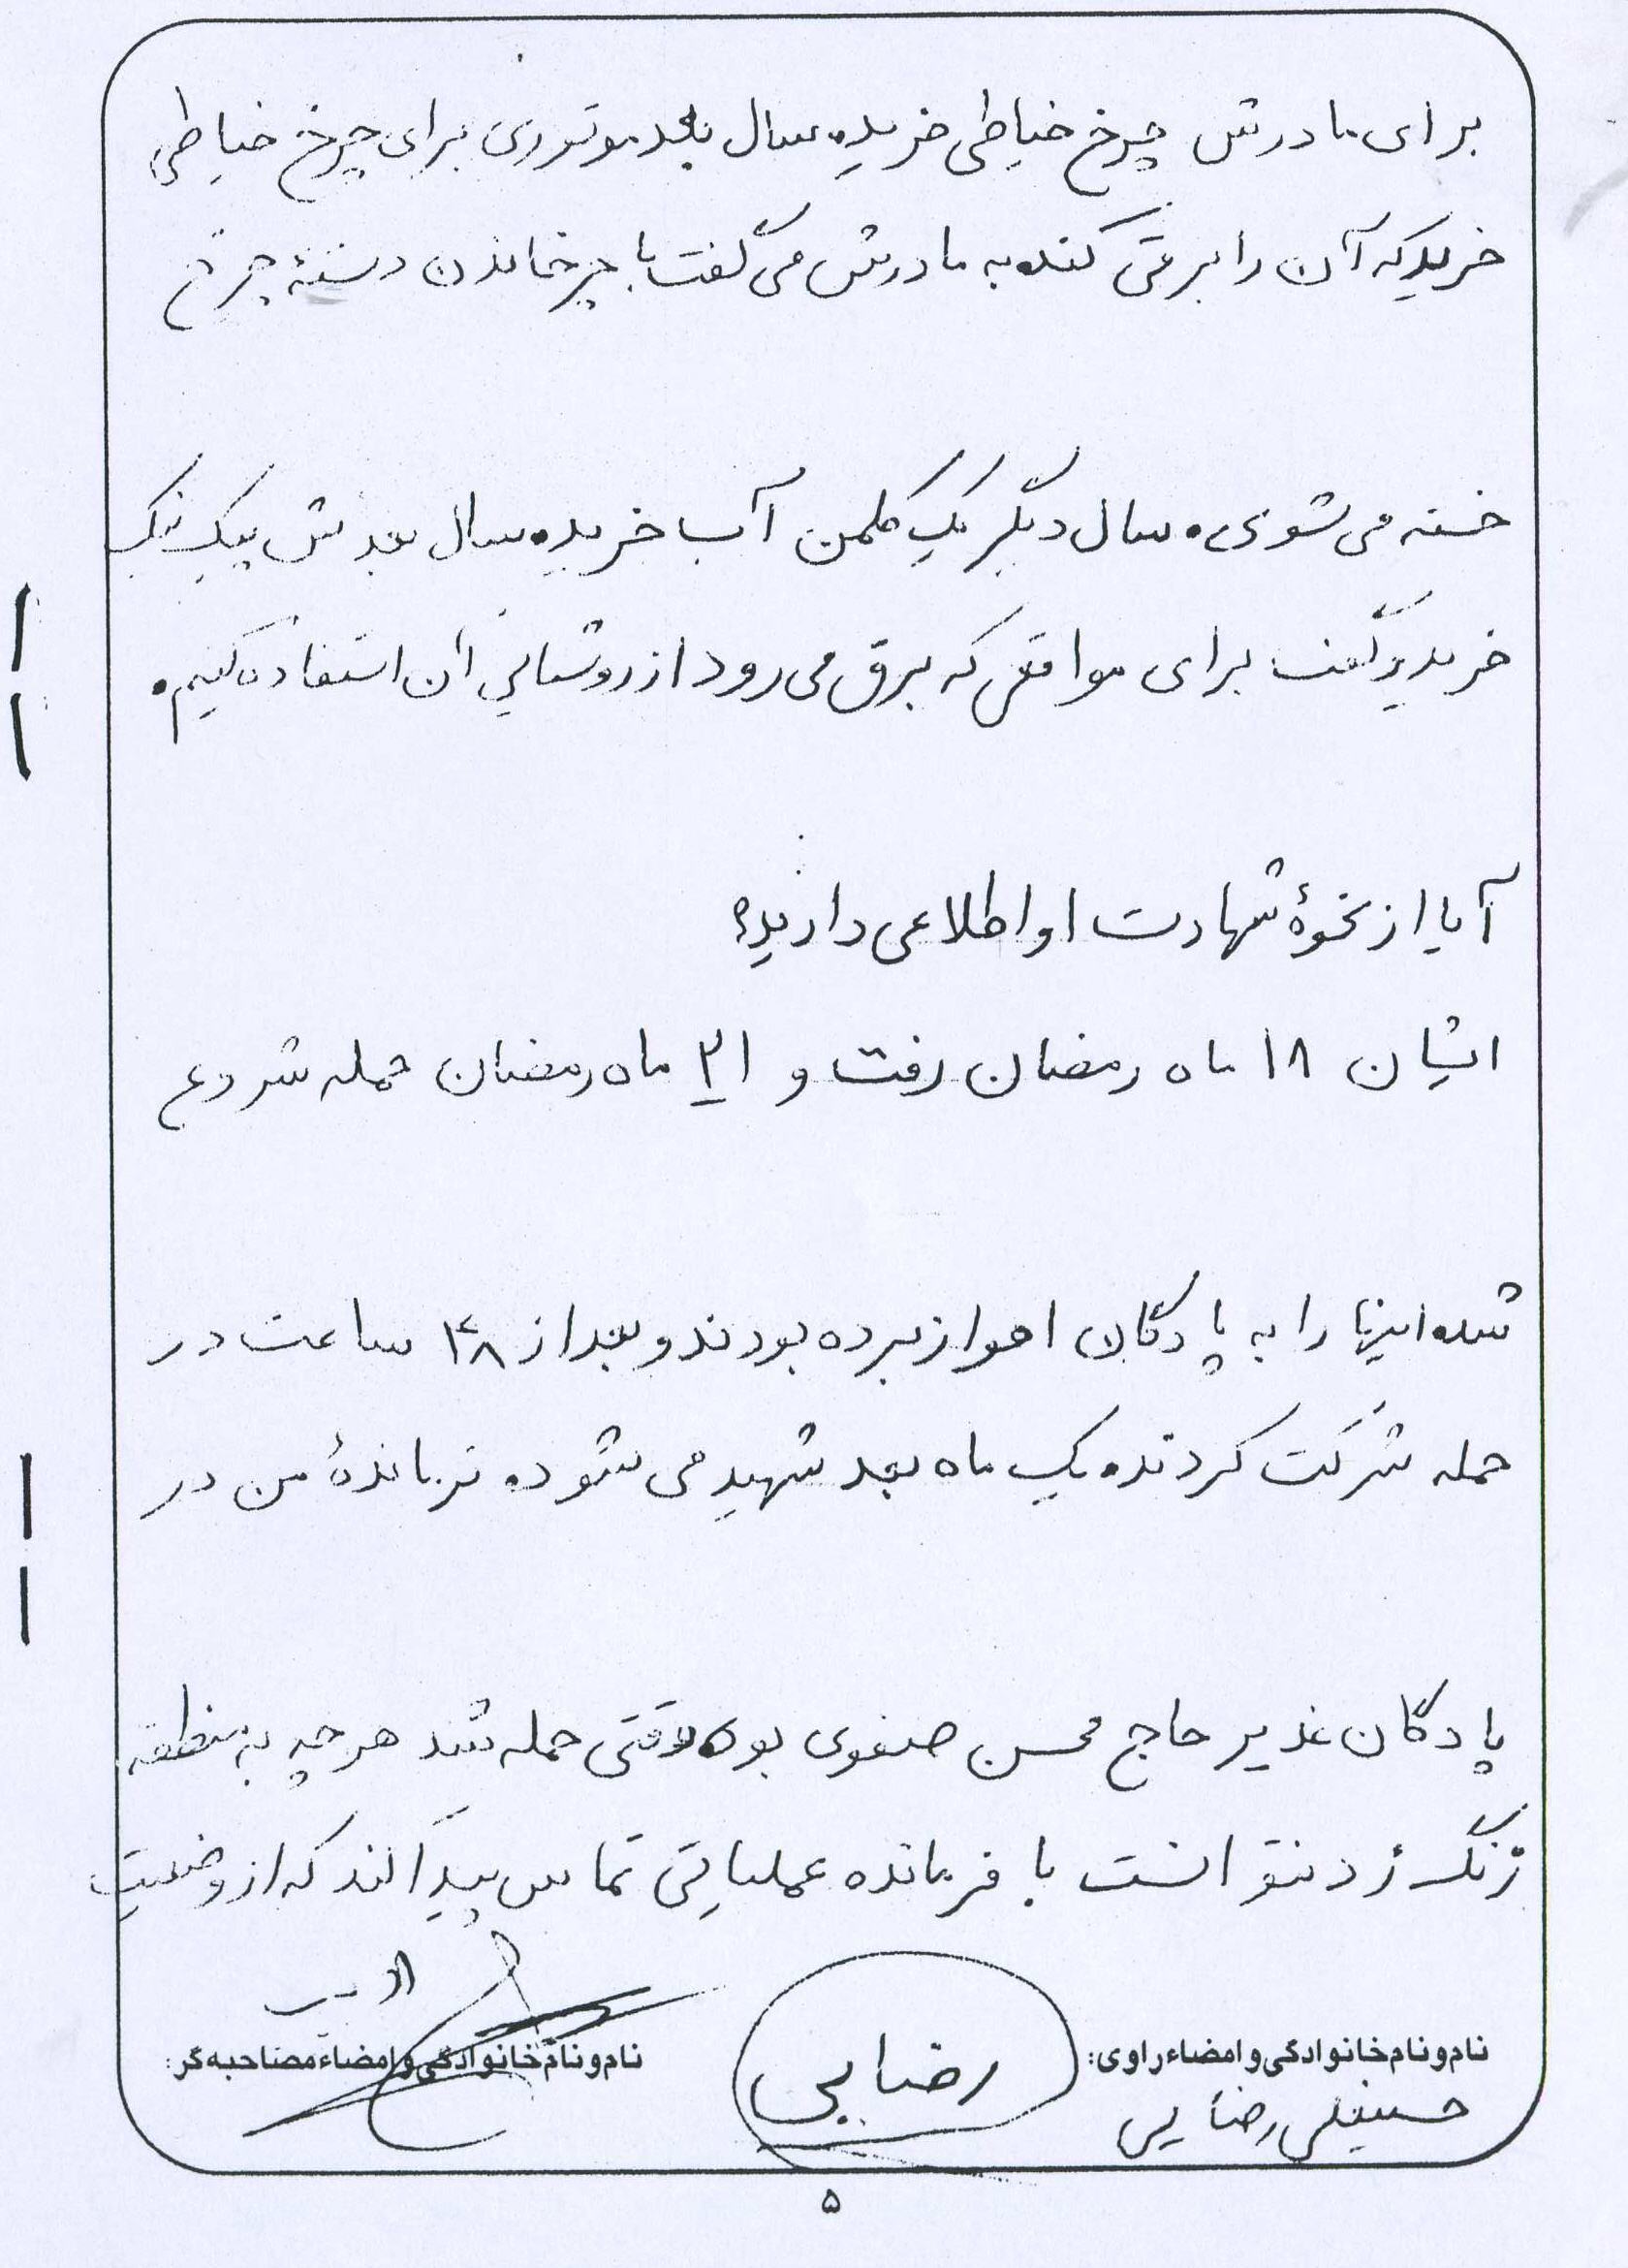 برای مادرش چرخ خیاطی خرید. سال بعد موتوری برای چرخ خیاطی
خرید که آن را برقی کند. به مادرش می گفت با چرخاندن دستهٔ چرخ
خسته می شوی. سال دیگر یک کلمن آب خرید. سال بعدش پیک نیک
خرید و گفت برای مواقعی که برق می رود از روشنایی آن استفاده کنیم.
آیا از نحوهٔ شهادت او اطلاعی دارید؟
ایشان ۱۸ ماه رمضان رفت و ۲۱ ماه رمضان حمله شروع
شد. اینها را به پادگان اهواز برده بودند و بعد از ۴۸ ساعت در
حمله شرکت کردند. یک ماه بعد شهید می شود. فرماندهٔ من در
پادگان غدیر حاج محسن صفوی بود. وقتی حمله شد هر چه به منطقه
زنگ زد نتوانست با فرمانده عملیاتی تماس پیدا کند که از وضعیت
نام و نام خانوادگی و امضاء راوی:
حسینعلی رضایی
رضایی
نام و نام خانوادگی و امضاء مصاحبه گر:
۵